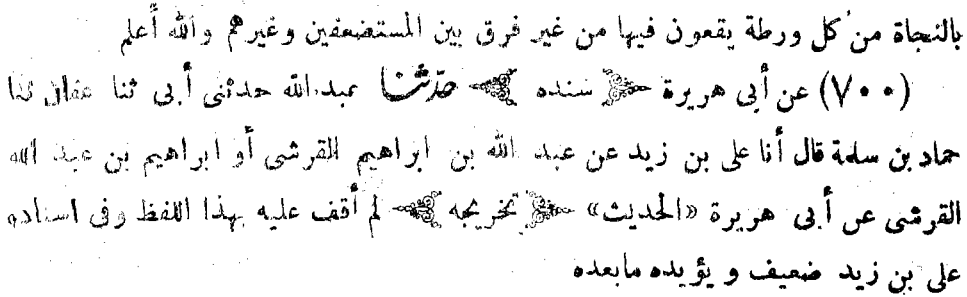 بالنجاة من كل ورطة يقعون فيها من غير فرق بين المستضعفين وغيرهم والله أعلم
(٧٠٠) عن أبى هريرة سنده حدثنا عبد الله حدثنى أبى ثنا عفان ثنا
حماد بن سلمة قال أنا على بن زيد عن عبد الله بن ابراهيم القرشى أو ابراهيم بن عبد الله
القرشى عن أبى هريرة «الحديث» تخريجه لم أقف عليه بهذا اللفظ وفى اسناده
على بن زيد ضعيف و يؤيده مابعده